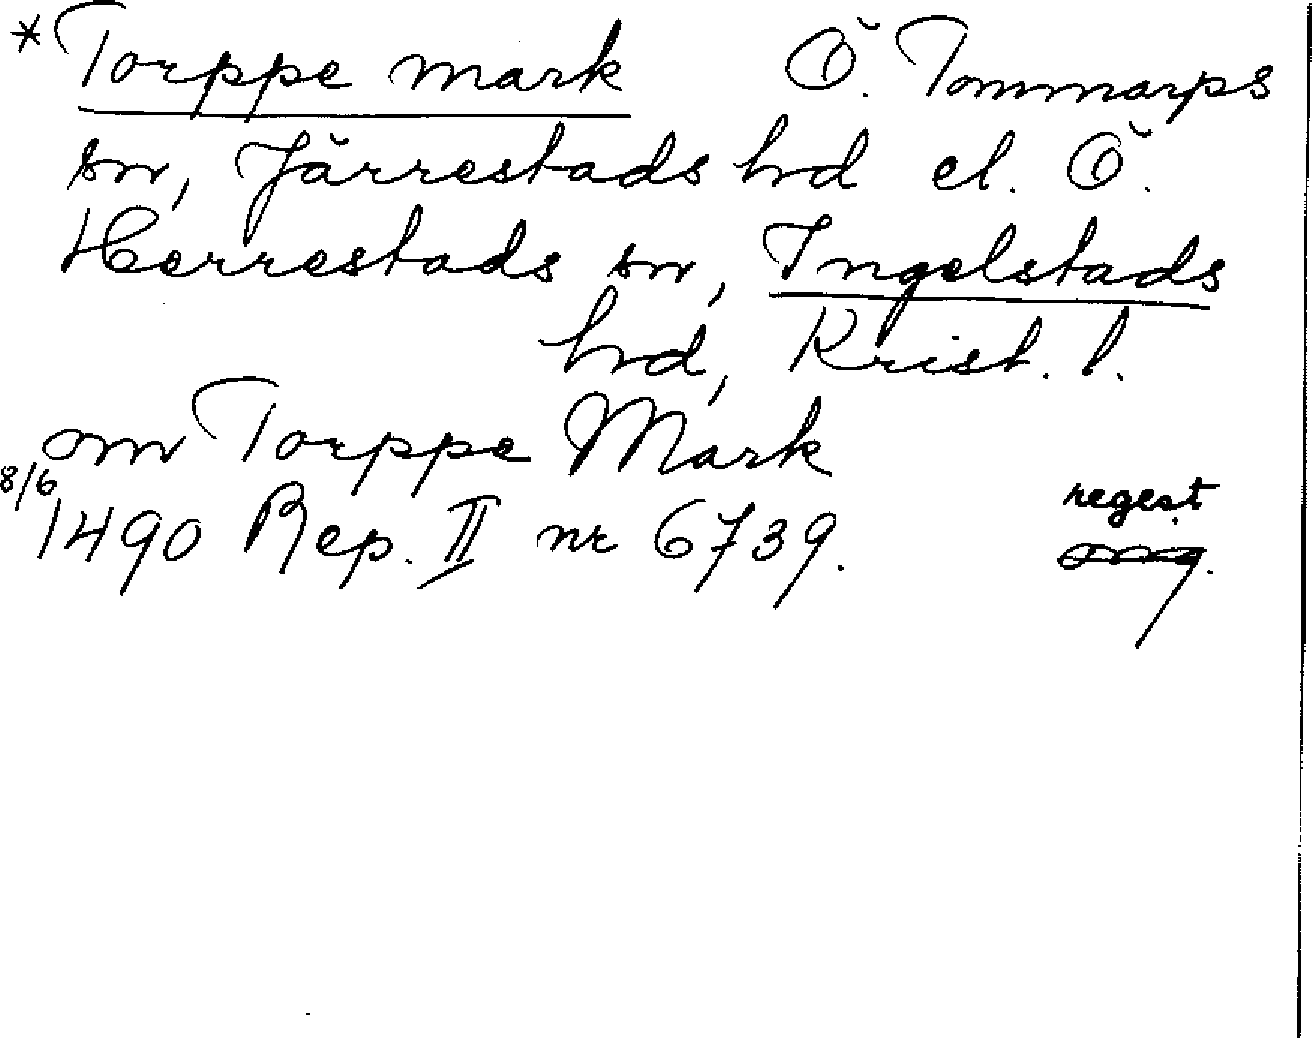 *Torppe mark Ö. Tommarps
sn, Järrestads hd el. Ö.
Herrestads sn, Ingelstads
hd, Krist. l.
om Torppe Mark
8/6 1490 Rep. II nr 6739.
regest